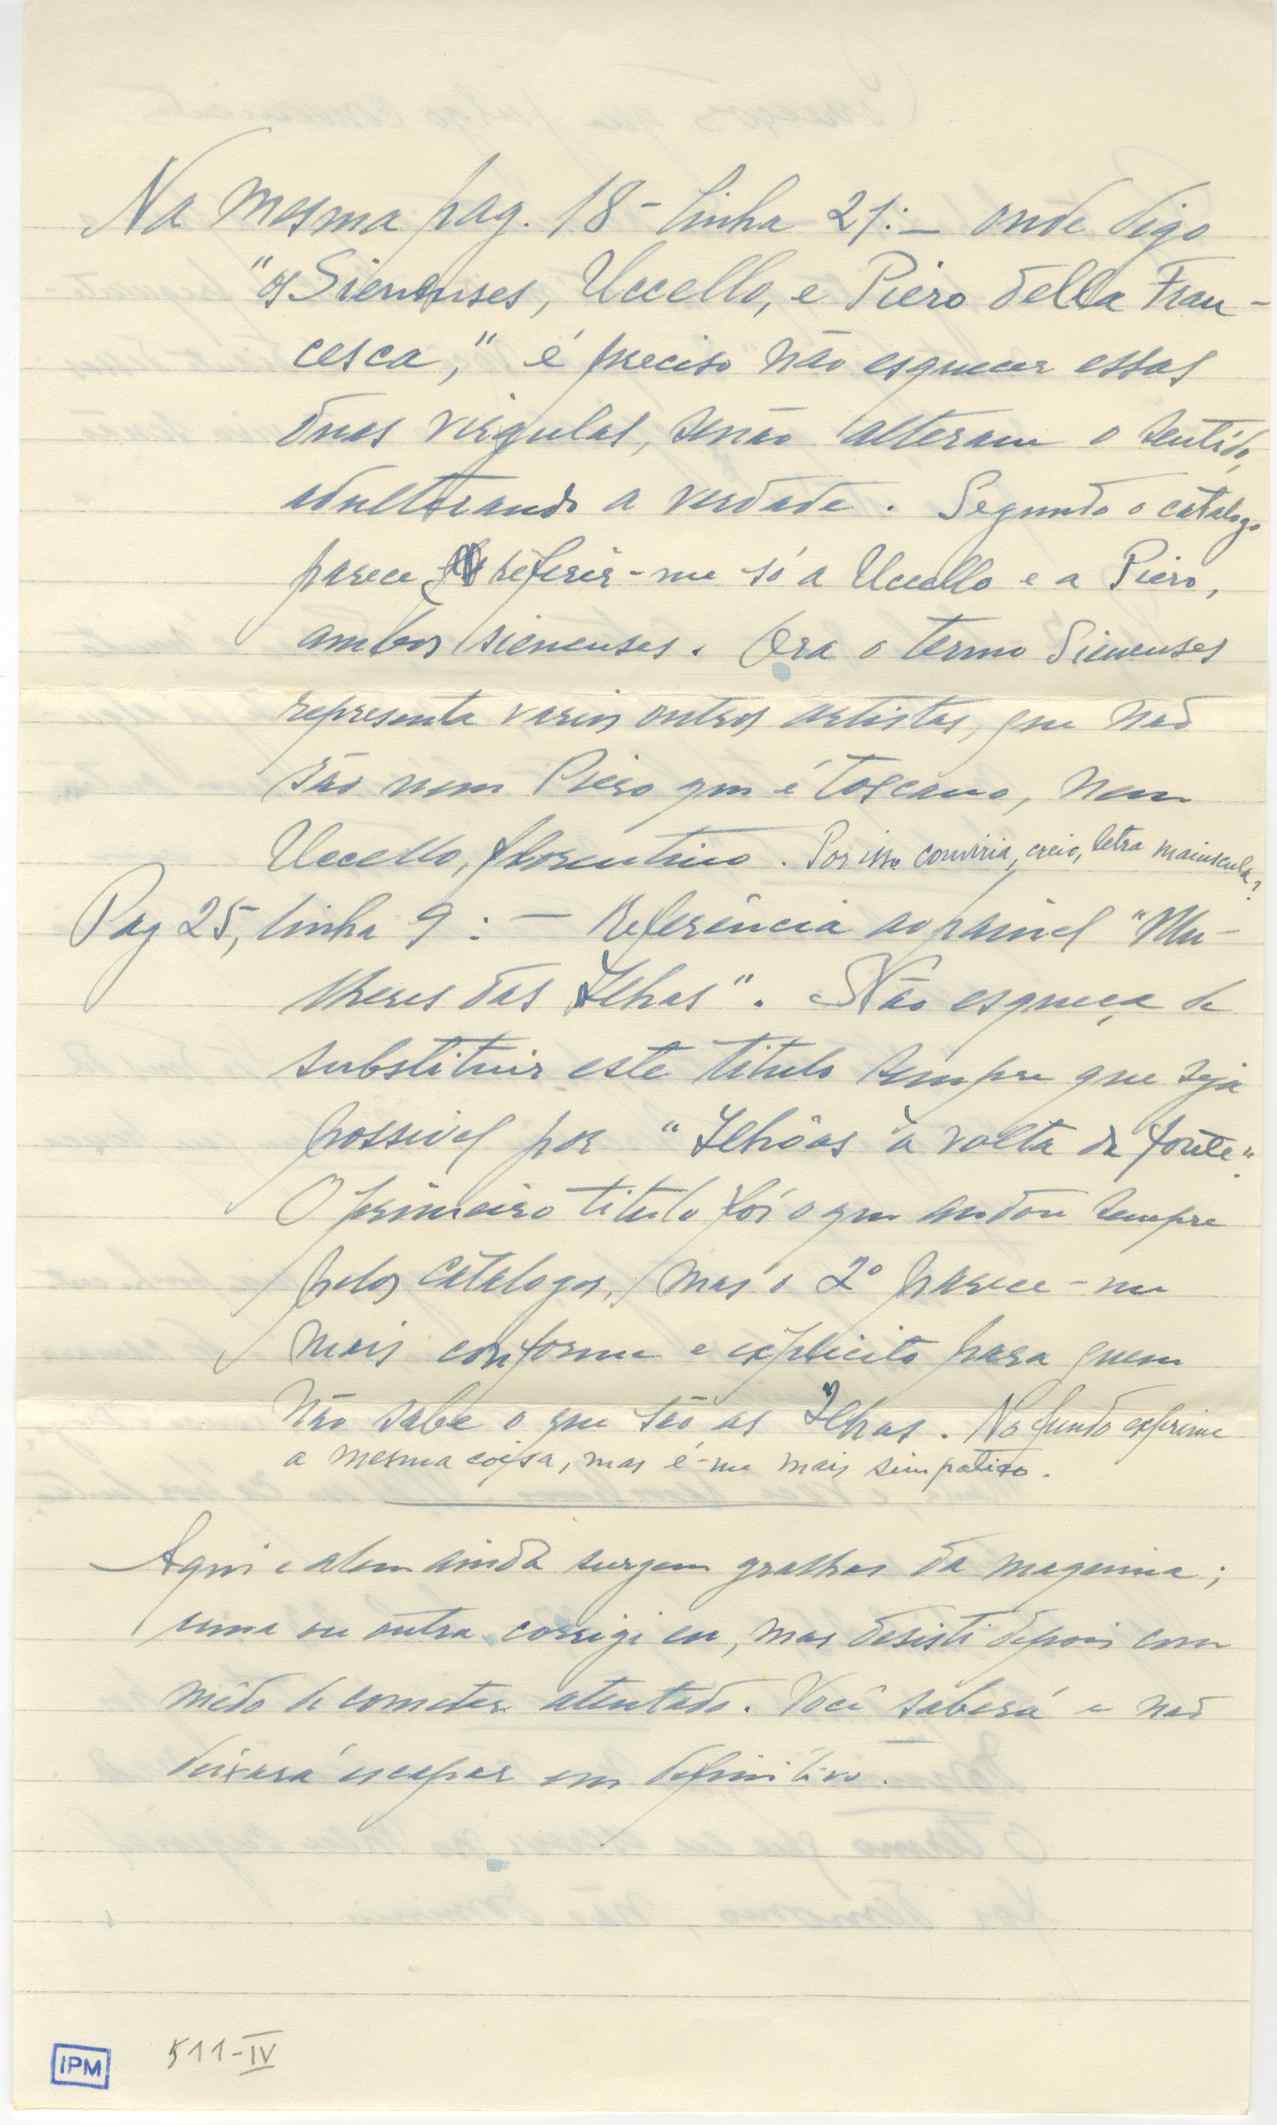 Na mesma pag. 18 - linha 21: — onde digo
"os Sienenses, Uccello, e Piero della Fran-
cesca," é preciso não esquecer essas
duas virgulas, senão alteram o sentido,
adulterando a verdade. Segundo o catalogo
parece referir-me só a Uccello e a Piero,
ambos sienenses. Ora o termo Sienenses
representa varios outros artistas, que não
são nem Piero que é toscano, nem
Uccello, florentino. Por isso conviria, creio, letra maiuscula?
Pag 25, linha 9: — Referência ao painel "Mu-
lheres das Ilhas". Não esqueça de
substituir este titulo sempre que seja
possivel por "Ilhôas à volta da fonte".
O primeiro titulo foi o que andou sempre
pelos catalogos, mas o 2º parece-me
mais conforme e explicito para quem
não sabe o que são as Ilhas. No fundo exprime
a mesma coisa, mas é-me mais simpatico.
Aqui e alem ainda surgem gralhas da maquina;
uma ou outra corrigi eu, mas desisti depois com
mêdo de cometer atentado. Você saberá e não
deixará escapar em definitivo.
IPM
511-IV